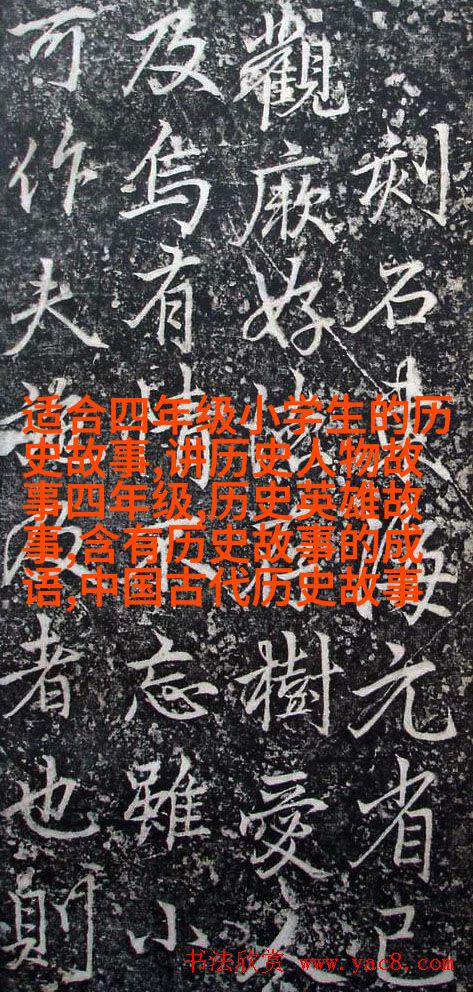 刻石海元省已
觀厥好樹愛
及焉有情忘雖小
可作夫者也則
适合四年级小学生的历
史故事,讲历史人物故
事四年级,历史英雄故
事,含有历史故事的成
语,中国古代历史故事
书法欣赏 www.yac8.com